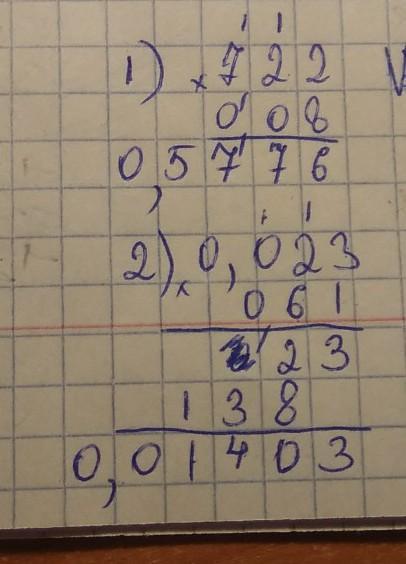 1) × 722
0 08
0,5776
2) × 0,023
061
23
138
0,01403